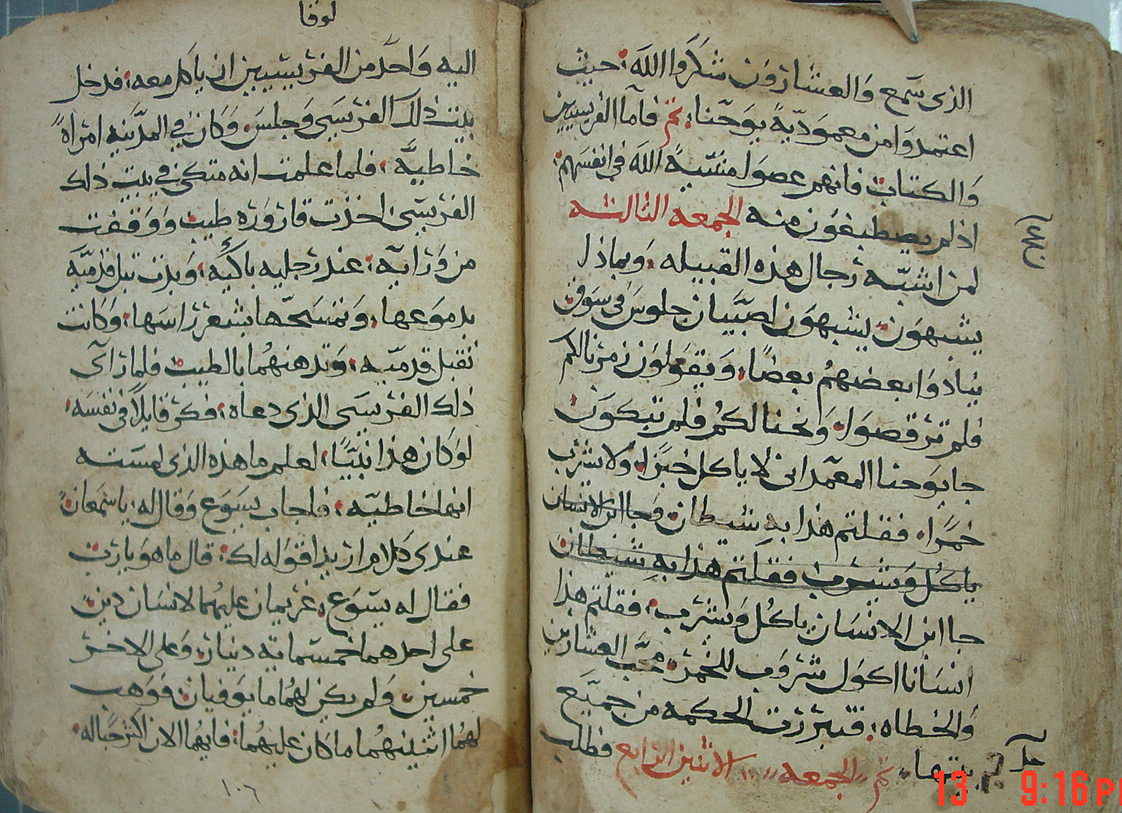 الذى سمع والعشارون شكروا الله، حيث
اعتمدوا من معمودية يوحنا، تم فاما الفريسيين
والكتاب فانهم عصوا مشية الله فى انفسهم،
اذ لم يصطبغون منه الجمعه الثالثه
لمن اشبه رجال هذه القبيله، وبماذا
يشبهون، يشبهون صبيان جلوس فى سوق
ينادوا بعضهم بعضا، ويقولون زمرنا لكم
فلم ترقصوا، ونحنا لكم فلم تبكون
جا يوحنا المعمدانى لا ياكل خبزا، ولا يشرب
خمرا، فقلتم هذا به شيطان وجا ابن الانسان
ياكل ويشرب فقلتم هذا به شيطان
جا ابن الانسان ياكل ويشرب، فقلتم هذا
انسانا اكول شروب للخمر، محب العشارين
والخطاه، فتبررت الحكمه من جميع
بنيها، تم الجمعه الاثنين الرابع فطلب
لوقا
اليه واحد من الفريسيين ان ياكل معه، فدخل
بيت ذلك الفريسى وجلس، وكان فى المدينه امراة
خاطية، فلما علمت انه متكى فى بيت ذلك
الفريسى اخذت قارورة طيب ووقفت
من ورايه، عند رجليه باكية، وبدت تبل قدميه
بدموعها، وتمسحها بشعر راسها، وكانت
تقبل قدميه، وتدهنهما بالطيب فلما راى
ذلك الفريسى الذى دعاه، فكر قايلا فى نفسه،
لو كان هذا نبيا، لعلم ما هذه الذى لمسته
انها خاطيه، فاجاب يسوع وقال له، يا سمعان
عندى كلام اريد اقوله لك، قال ما هو يا رب
فقال له يسوع، غريمان عليهما لانسان دين
على احدهما خمسمايه دينار، وعلى الاخر
خمسين، ولم يكن لهما ما يوفيان فوهب
لهما اثنينهما ما كان عليهما، فايهما الان اكثر حبا له،
١٠٦
13 9:16 P